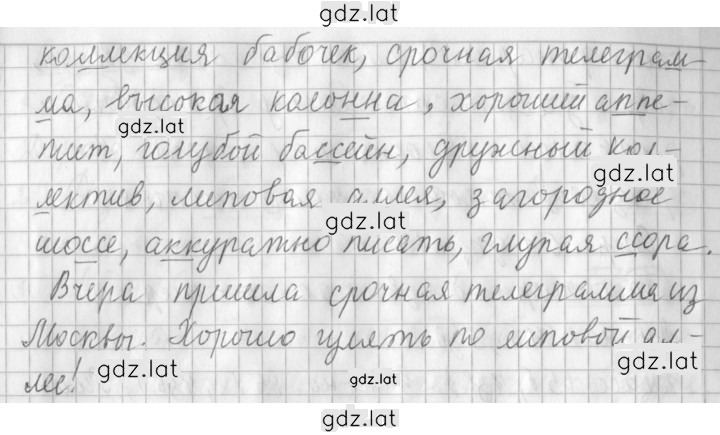 gdz.lat
коллекция бабочек, срочная телеграм-
ма, высокая колонна, хороший аппе-
gdz.lat
тит, голубой бассейн, дружный кол-
gdz.lat
лектив, липовая аллея, загородное
gdz.lat
шоссе, аккуратно писать, глупая ссора.
Вчера пришла срочная телеграмма из
Москвы. Хорошо гулять по липовой ал-
gdz.lat gdz.lat
лее! gdz.lat
gdz.lat